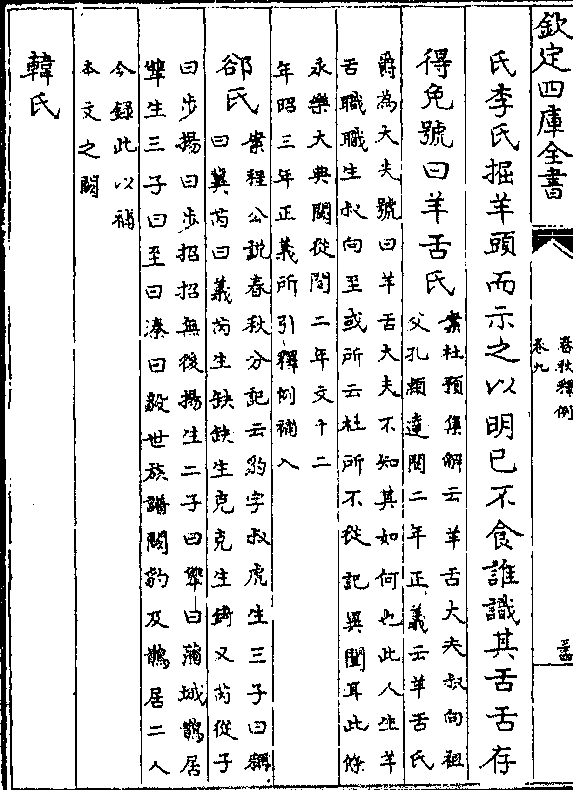 欽定四庫全書
春秋釋例
卷九
氏李氏掘羊頭而示之以明已不食誰識其舌舌存
得免號曰羊舌氏
案杜預集解云羊舌大夫叔向祖
父孔穎達閔二年正義云羊舌氏
爵為大夫號曰羊舌大夫不知其如何也此人生羊
舌職職生叔向至或所云杜所不從記異聞耳此條
永樂大典闕從閔二年文十二
年昭三年正義所引釋例補入
郤氏
案程公說春秋分記云豹字叔虎生三子曰稱
曰冀芮曰義芮生缺缺生克克生錡又芮從子
曰步揚曰步招招無後揚生二子曰犨曰蒲城鵲居
犨生三子曰至曰溱曰毅世族譜闕豹及鵲居二人
今錄此以補
本文之闕
韓氏